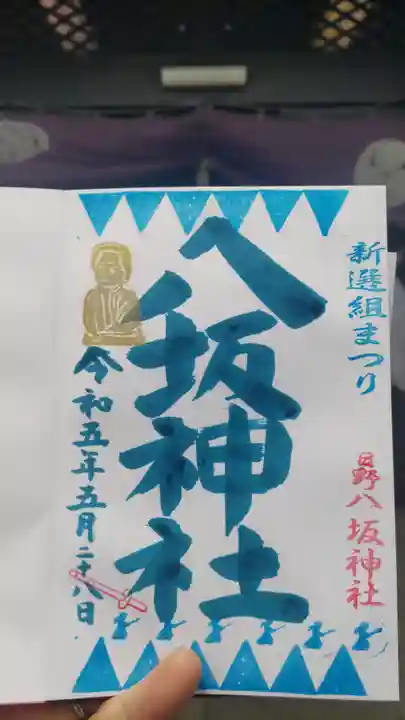 新選組まつり
日野八坂神社
八坂神社
令和五年五月二十八日